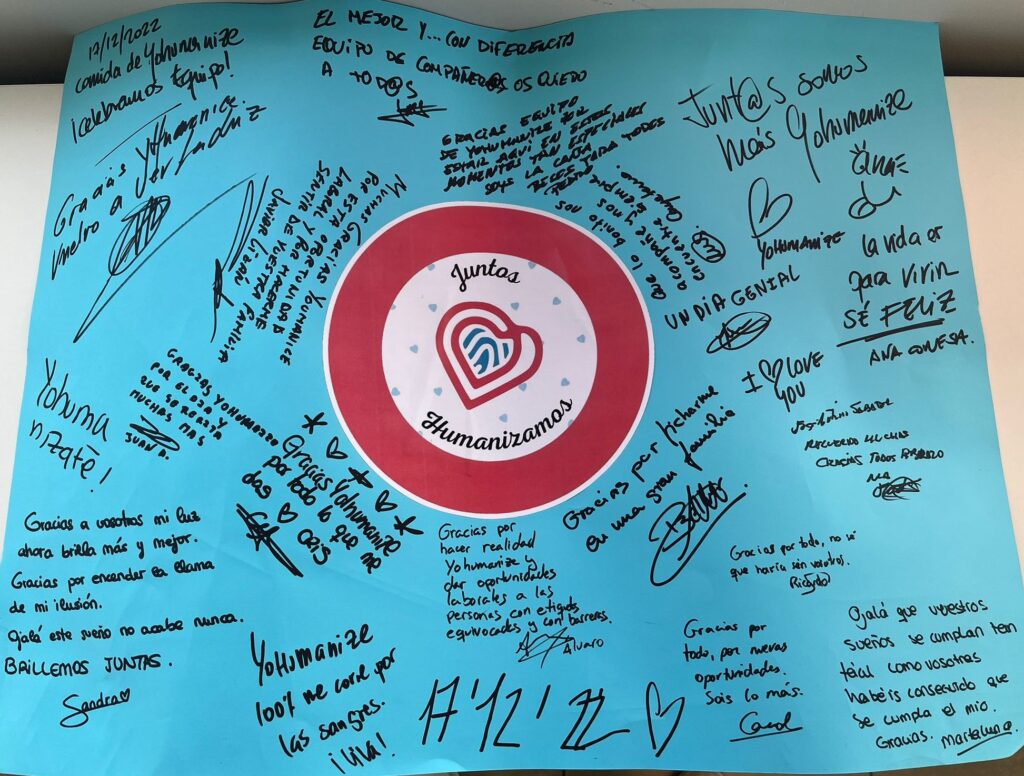 17/12/2022
comida de Yohumanize
¡celebramos Equipo!
EL MEJOR Y... CON DIFERENCIA
EQUIPO DE COMPAÑER@S OS QUIERO
A TOD@S
Gracias Yohumanice.
Vuelvo a ver la luz
MUCHAS GRACIAS YOUMANICE
POR ESTA OPORTUNIDAD
LABORAL Y POR HACERME
SENTIR DE VUESTRA FAMILIA
GRACIAS EQUIPO
DE YOHUMANIZE POR
ESTAR AQUI EN ESTOS
MOMENTOS TAN ESPECIALES
SOIS LA CAÑA TODOS
Que lo bonito nos
acompañe siempre
Junt@s somos
más Yohumanize
YOHUMANIZE
UN DIA GENIAL
la vida es
para vivir
SÉ FELIZ
ANA CONESA.
I LOVE
YOU
RECUERDO MUCHAS
GRACIAS TODOS
Juntos
Humanizamos
Yohuma
nízate!
GRACIAS YOHUMANIZE
POR EL DIA Y
MUCHAS MAS
JUAN A.
Gracias Yohumanize
por todo lo que nos
dais
Gracias por hecharme
en una gran familia
Gracias a vosotros mi luz
ahora brilla más y mejor.
Gracias por encender la llama
de mi ilusión.
Ojalá este sueño no acabe nunca.
BRILLEMOS JUNTAS.
Sandra
YoHumanize
100% me corre por
las sangres.
¡Viva!
Gracias por
hacer realidad
Yohumanize y
dar oportunidades
laborales a las
personas con etiquetas
equivocadas y con barreras.
Alvaro
17'12'22
Gracias por todo, no sé
que haría sin vosotros.
Ricardo
Gracias por
todo, por nuevas
oportunidades.
Sois lo más.
Carol
Ojalá que vuestros
sueños se cumplan tan
tal como vosotras
habéis conseguido que
se cumpla el mío.
Gracias. Martaluna.